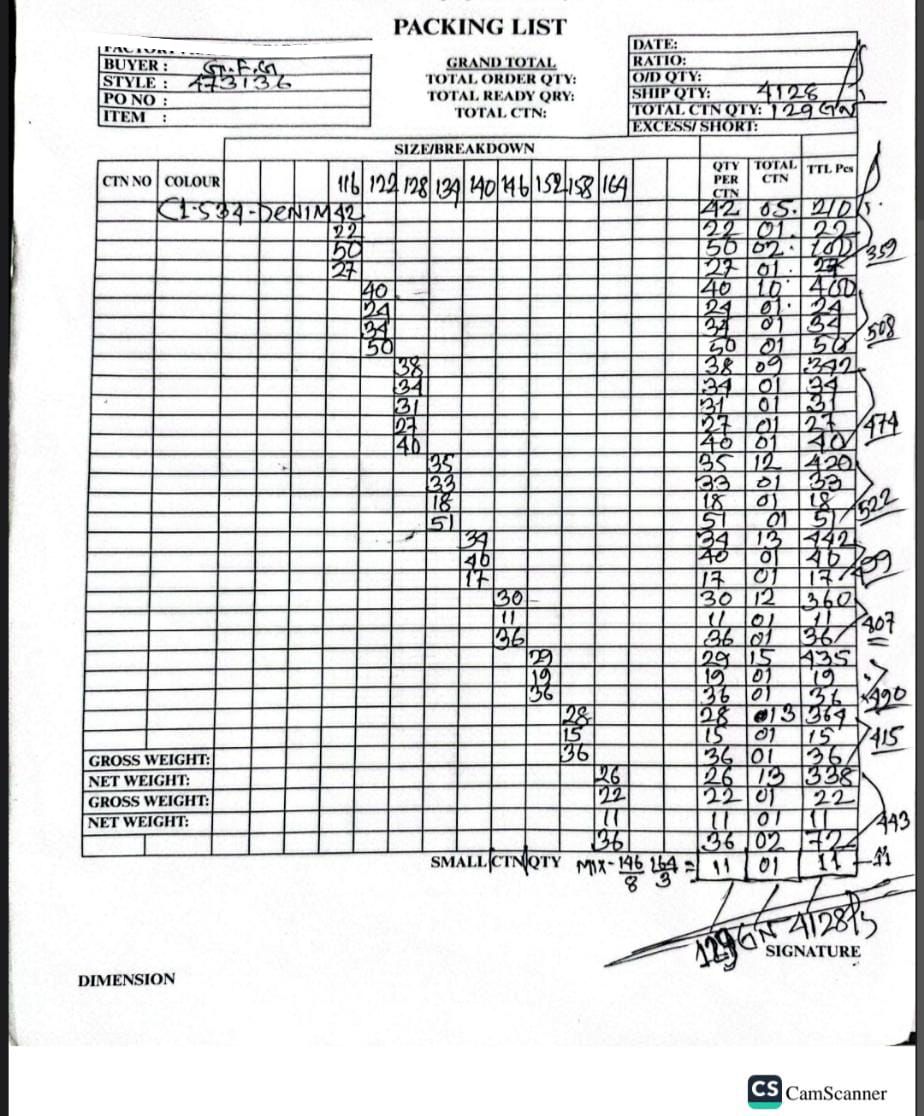 PACKING LIST
BUYER : G.F.G
STYLE : 473136
PO NO :
ITEM :
GRAND TOTAL
TOTAL ORDER QTY:
TOTAL READY QRY:
TOTAL CTN:
DATE:
RATIO:
O/D QTY:
SHIP QTY: 4128
TOTAL CTN QTY: 129
EXCESS/ SHORT:
SIZE/BREAKDOWN
CTN NO COLOUR 116 122 128 134 140 146 152 158 164 QTY PER CTN TOTAL CTN TTL Pcs
C1-534-DENIM 42 42 05. 210
22 22 01. 22
50 50 02. 100
27 27 01. 27 359
40 40 10. 400
24 24 01. 24
34 34 01 34 508
50 50 01 50
38 38 09 342
34 34 01 34
31 31 01 31
27 27 01 27 474
40 40 01 40
35 35 12 420
33 33 01 33
18 18 01 18 522
51 51 01 51
34 34 13 442
40 40 01 40
17 17 01 17 499
30 30 12 360
11 11 01 11 407
36 36 01 36
29 29 15 435
19 19 01 19
36 36 01 36 490
28 28 013 364
15 15 01 15 415
GROSS WEIGHT: 36 36 01 36
NET WEIGHT: 26 26 13 338
GROSS WEIGHT: 22 22 01 22
NET WEIGHT: 11 11 01 11 443
36 36 02 72
SMALL CTN QTY MIX-146/8 164/3 = 11 01 11 - 11
129 4128
SIGNATURE
DIMENSION
CS CamScanner